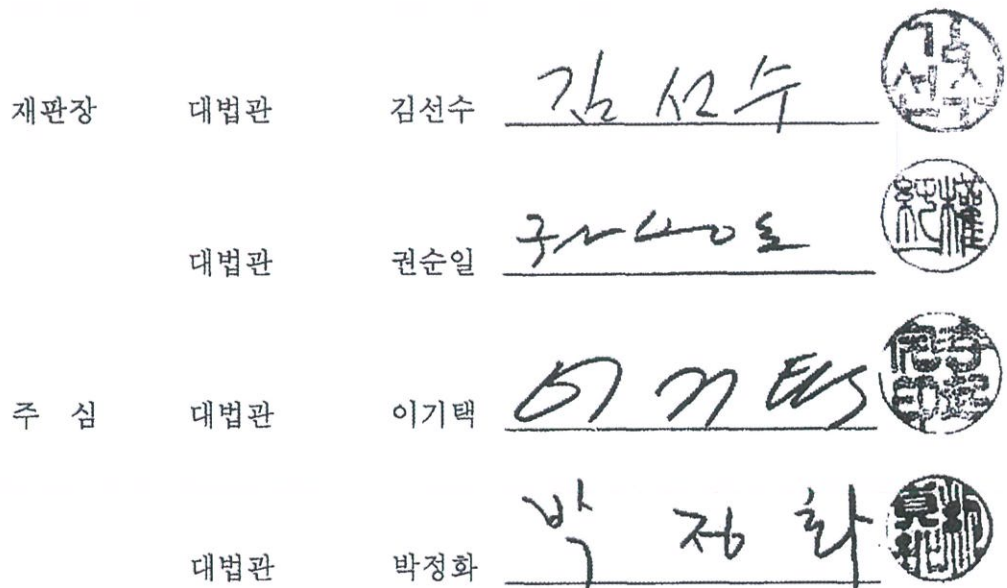 재판장 대법관 김선수 김선수
대법관 권순일 권순일
주 심 대법관 이기택 이기택
대법관 박정화 박정화